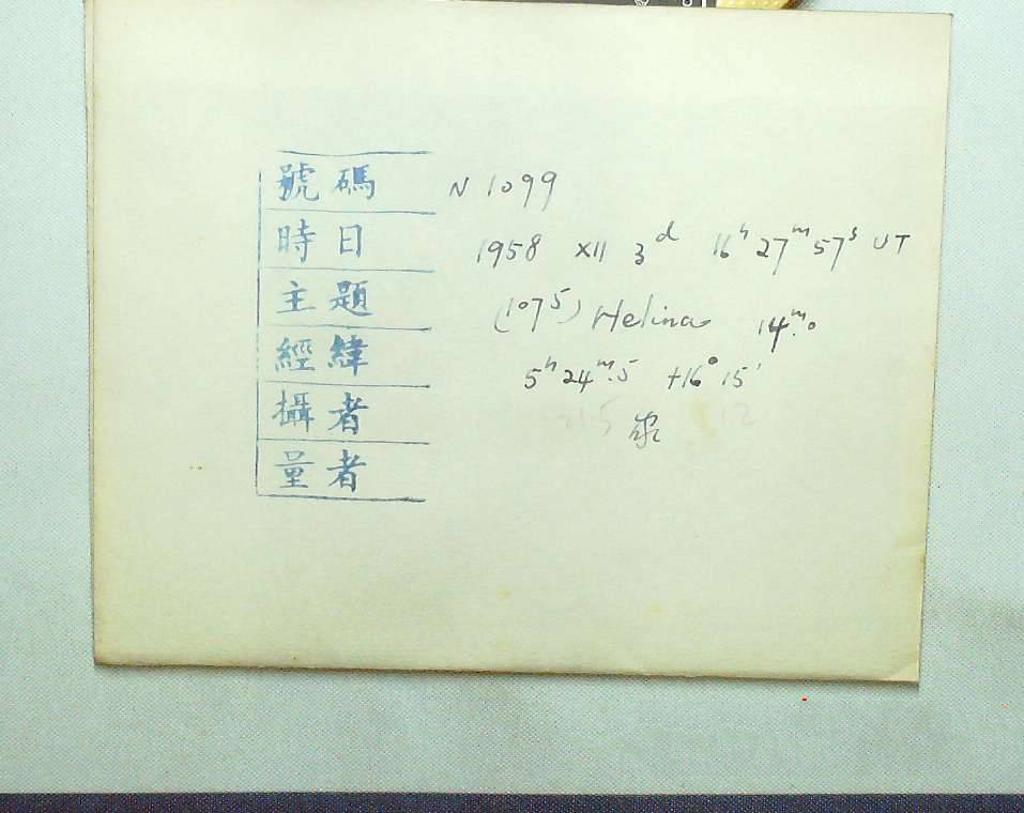 號碼 N 1099
時日 1958 XII 3ᵈ 16ʰ 27ᵐ 57ˢ UT
主題 (1075) Helina 14ᵐ.0
經緯 5ʰ 24ᵐ.5 +16° 15'
攝者
量者